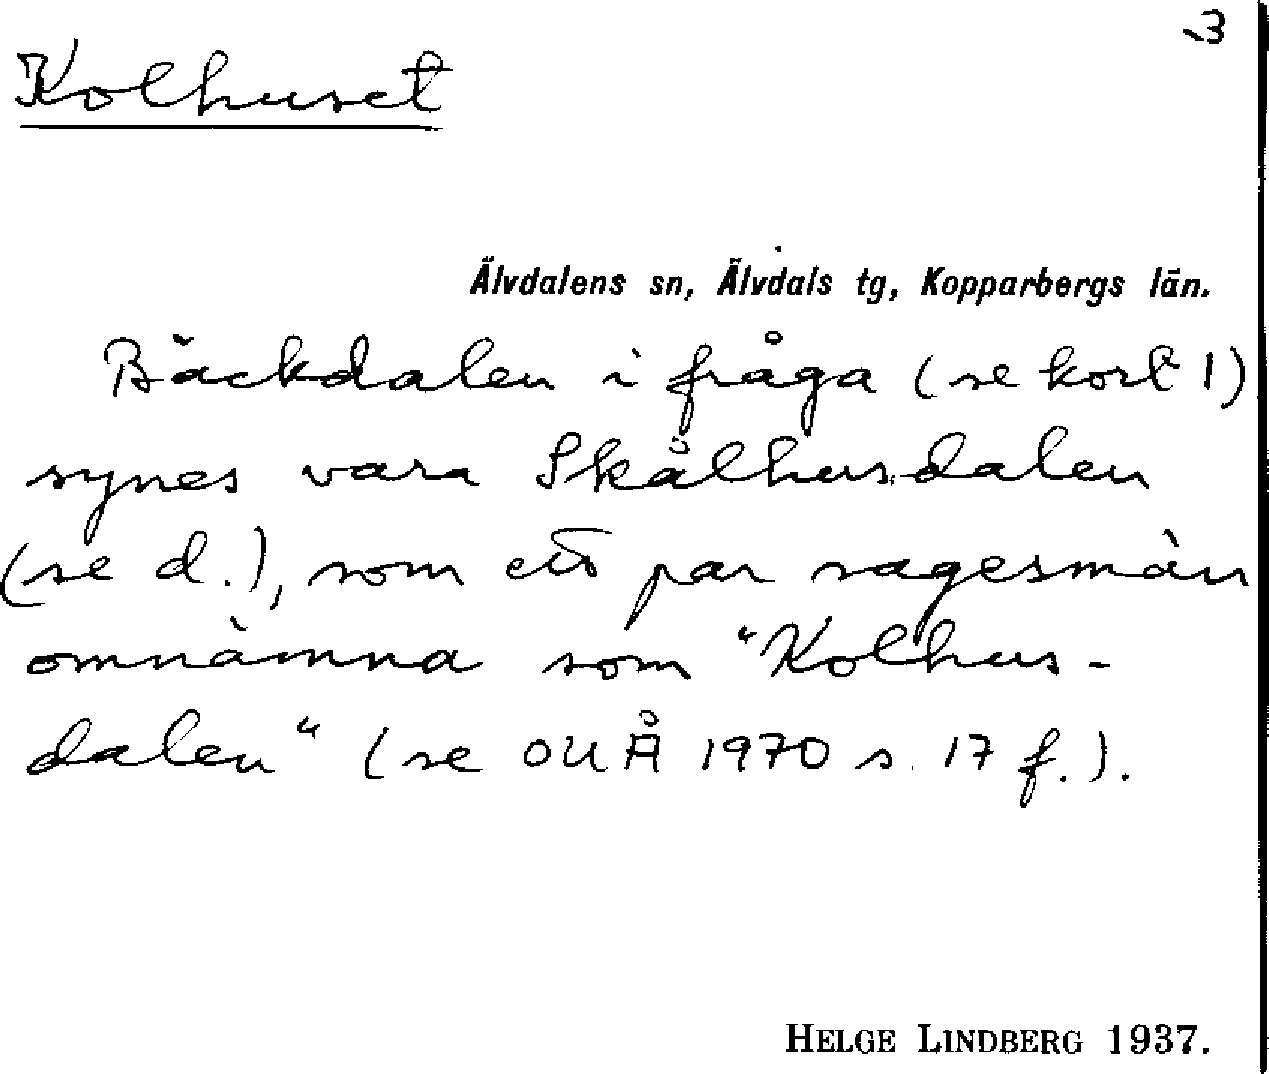 3
Kolhuset
Älvdalens sn, Älvdals tg, Kopparbergs län.
Bäckdalen i fråga (se kort 1)
synes vara Skålhusdalen
(se d.), som ett par sagesmän
omnämna som "Kolhus-
dalen" (se OUÅ 1970 s. 17 f.).
HELGE LINDBERG 1937.